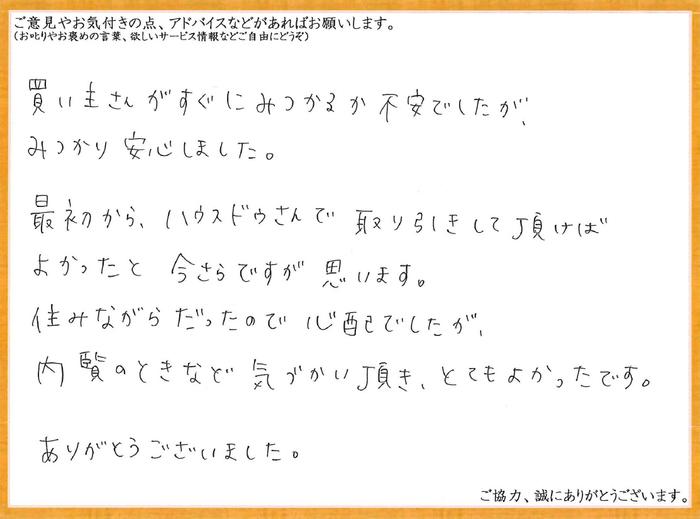 ご意見やお気付きの点、アドバイスなどがあればお願いします。
(お叱りやお褒めの言葉、欲しいサービス情報などご自由にどうぞ)
買い主さんがすぐにみつかるか不安でしたが、
みつかり安心しました。
最初から、ハウスドゥさんで取り引きして頂けば
よかったと今さらですが思います。
住みながらだったので心配でしたが、
内覧のときなど気づかい頂き、とてもよかったです。
ありがとうございました。
ご協力、誠にありがとうございます。